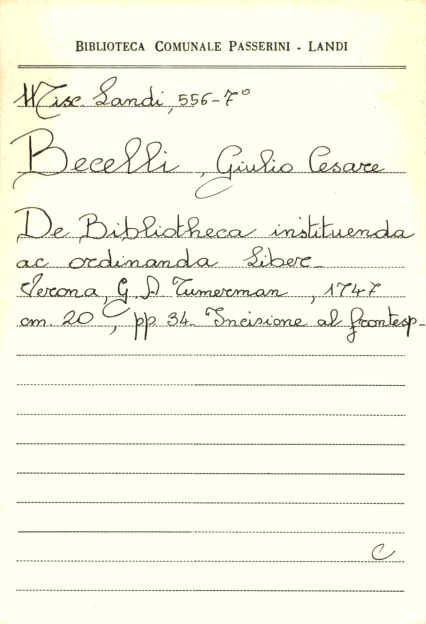 BIBLIOTECA COMUNALE PASSERINI - LANDI
Misc Landi, 556-7°
Becelli, Giulio Cesare
De Bibliotheca instituenda
ac ordinanda Liber-
Verona, G. A Tumerman, 1747
cm. 20, pp 34- Incisione al frontesp-
C